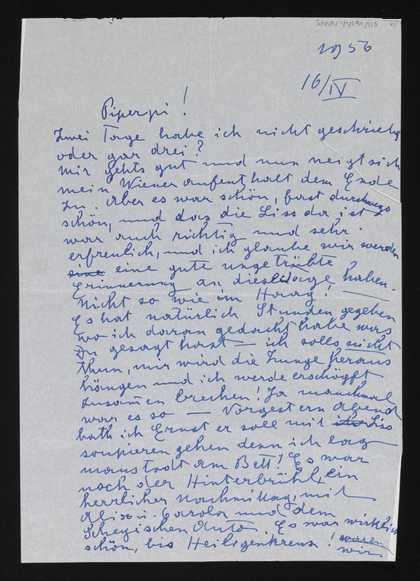 1956
16/IV
Piperpi!
Zwei Tage habe ich nicht geschrieben
oder gar drei?
Mir gehts gut und nun neigt sich
mein Wiener aufenthalt dem Ende
zu. Aber es war schön, fast durchwegs
schön, und das die Liss da ist
war auch richtig und sehr
erfreulich, und ich glaube wir werden
eine gute ungetrübte
Erinnerung an diese Tage haben.
Nicht so wie im Haag! —
Es hat natürlich Stunden gegeben
wo ich daran gedacht habe was
Du gesagt hast — ich solls nicht
thun, mir wird die Zunge heraus
hängen und ich werde erschöpft
zusammen brechen! Ja manchmal
war es so — Vorgestern Abend
bath ich Ernst er soll mit Liss
soupieren gehen denn ich lag
maustodt am Bett! Es war
nach der Hinterbrühl, ein
herrlicher Nachmittag, mit
Alix u. Carola und dem
Auto. Es war wirklich
schön, bis Heiligenkreuz! waren
wir